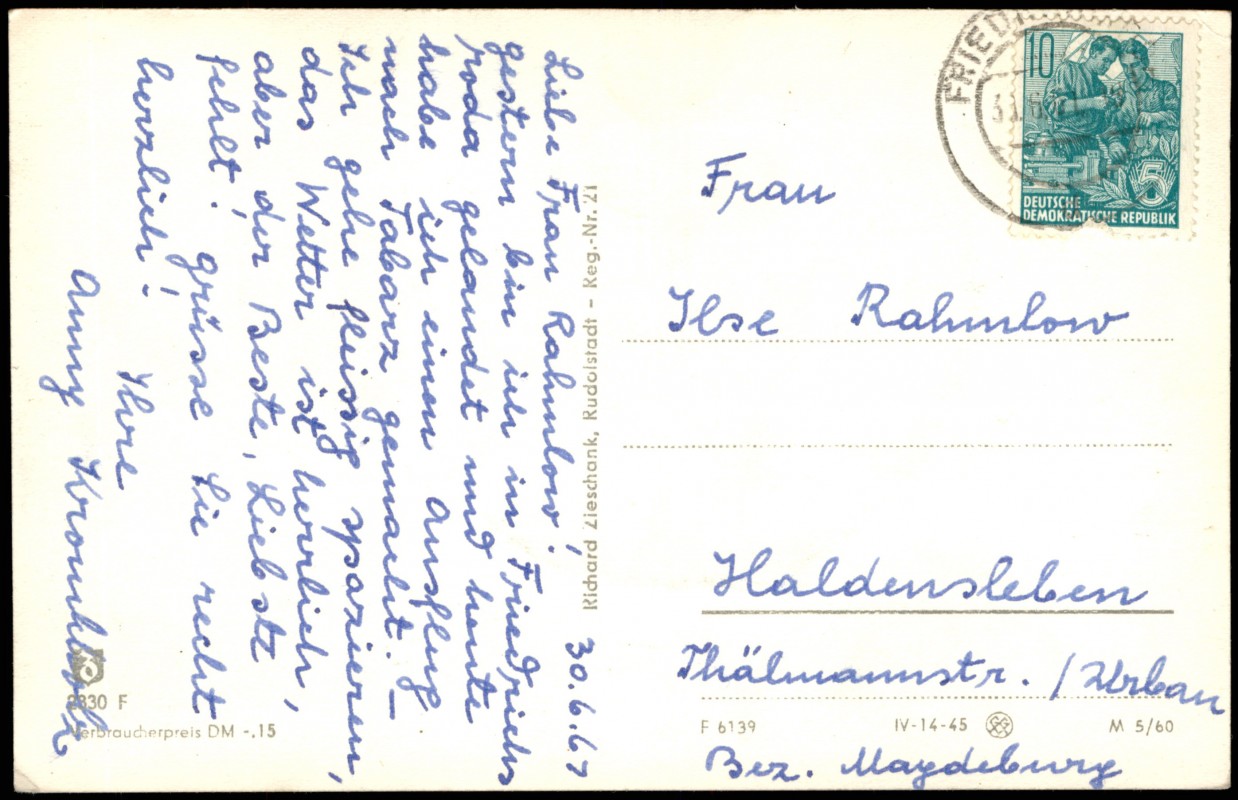 30.6.61
Liebe Frau Rahmlow!
gestern bin ich in Friedrichs
roda gelandet und heute
habe ich einen Ausflug
nach Tabarz gemacht. –
Ich gehe fleissig spazieren,
das Wetter ist herrlich,
aber der Beste, Liebste
fehlt! grüsse Sie recht
herzlich! Ihre
Anny
Richard Zieschank, Rudolstadt – Reg.-Nr. 21
10
DEUTSCHE
DEMOKRATISCHE REPUBLIK
5
Frau
Ilse Rahmlow
Haldensleben
Thälmannstr. / Urban
Bez. Magdeburg
F 6139 IV-14-45 M 5/60
9830 F
Verbraucherpreis DM -.15